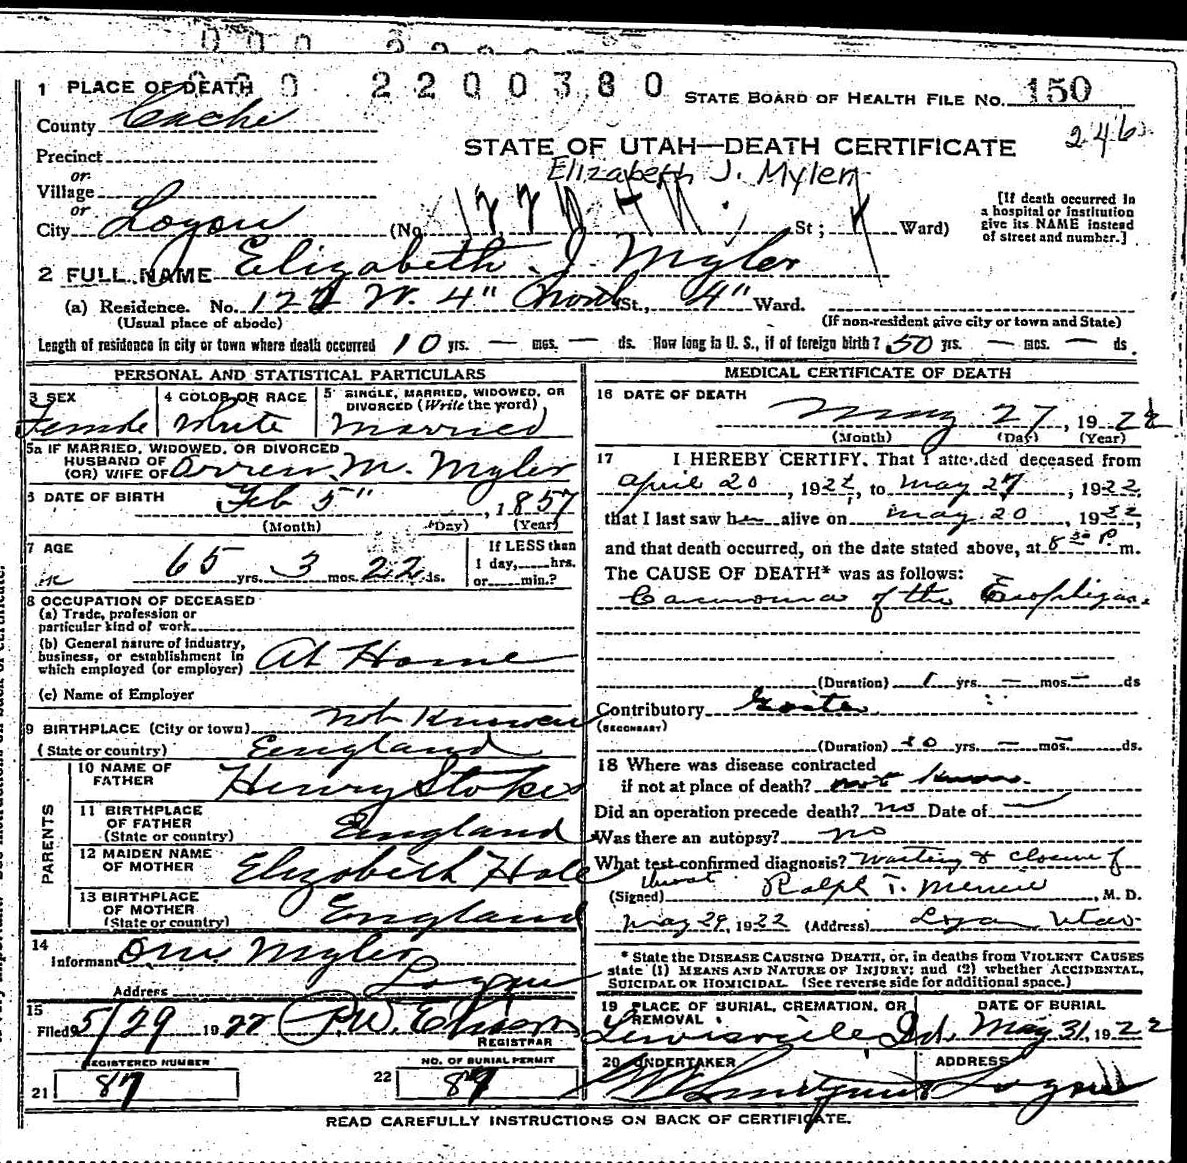 000 2200380
1 PLACE OF DEATH
STATE BOARD OF HEALTH FILE NO. 150
County Cache
246
STATE OF UTAH—DEATH CERTIFICATE
Precinct
Elizabeth J. Myler
or
Village
or
City Logan (No. St; Ward)
[If death occurred in
a hospital or institution
give its NAME instead
of street and number.]
2 FULL NAME Elizabeth J. Myler
(a) Residence. No. W. 4" North St., 4" Ward.
(Usual place of abode) (If non-resident give city or town and State)
Length of residence in city or town where death occurred 10 yrs. — mos. — ds. How long in U. S., if of foreign birth? 50 yrs. — mos. — ds.
PERSONAL AND STATISTICAL PARTICULARS
3 SEX Female
4 COLOR OR RACE White
5 SINGLE, MARRIED, WIDOWED, OR
DIVORCED (Write the word)
Married
5a IF MARRIED, WIDOWED, OR DIVORCED
HUSBAND OF
(OR) WIFE OF Orrren M. Myler
6 DATE OF BIRTH Feb 5" , 1857
(Month) (Day) (Year)
7 AGE
65 yrs. 3 mos. 22 ds.
If LESS than
1 day, hrs.
or min.?
8 OCCUPATION OF DECEASED
(a) Trade, profession or
particular kind of work
(b) General nature of industry,
business, or establishment in
which employed (or employer) At Home
(c) Name of Employer
9 BIRTHPLACE (City or town) not Known
(State or country) England
PARENTS
10 NAME OF
FATHER Henry Stokes
11 BIRTHPLACE
OF FATHER
(State or country) England
12 MAIDEN NAME
OF MOTHER Elizabeth Hale
13 BIRTHPLACE
OF MOTHER
(State or country) England
14
Informant Myler
Address Logan
15
Filed 5/29 1922 P.W. Eliason
REGISTRAR
REGISTERED NUMBER
21 87
NO. OF BURIAL PERMIT
22 89
MEDICAL CERTIFICATE OF DEATH
16 DATE OF DEATH
May 27, 1922
(Month) (Day) (Year)
17 I HEREBY CERTIFY, That I attended deceased from
April 20, 1922, to May 27, 1922,
that I last saw her alive on May 20, 1922,
and that death occurred, on the date stated above, at 8 30 P. m.
The CAUSE OF DEATH* was as follows:
Carcinoma of the Esophigas.
(Duration) 1 yrs. — mos. — ds
Contributory Goiter
(SECONDARY)
(Duration) yrs. — mos. — ds.
18 Where was disease contracted
if not at place of death? not known.
Did an operation precede death? no Date of —
Was there an autopsy? no
What test confirmed diagnosis? Wasting & closure of
throat
(Signed) Ralph T. Merrill, M. D.
May 29, 1922 (Address) Logan Utah
* State the DISEASE CAUSING DEATH, or, in deaths from VIOLENT CAUSES
state (1) MEANS AND NATURE OF INJURY; and (2) whether ACCIDENTAL,
SUICIDAL OR HOMICIDAL. (See reverse side for additional space.)
19 PLACE OF BURIAL, CREMATION, OR
REMOVAL
Lewisville Id.
DATE OF BURIAL
May 31, 1922
20 UNDERTAKER
ADDRESS
Logan
READ CAREFULLY INSTRUCTIONS ON BACK OF CERTIFICATE.